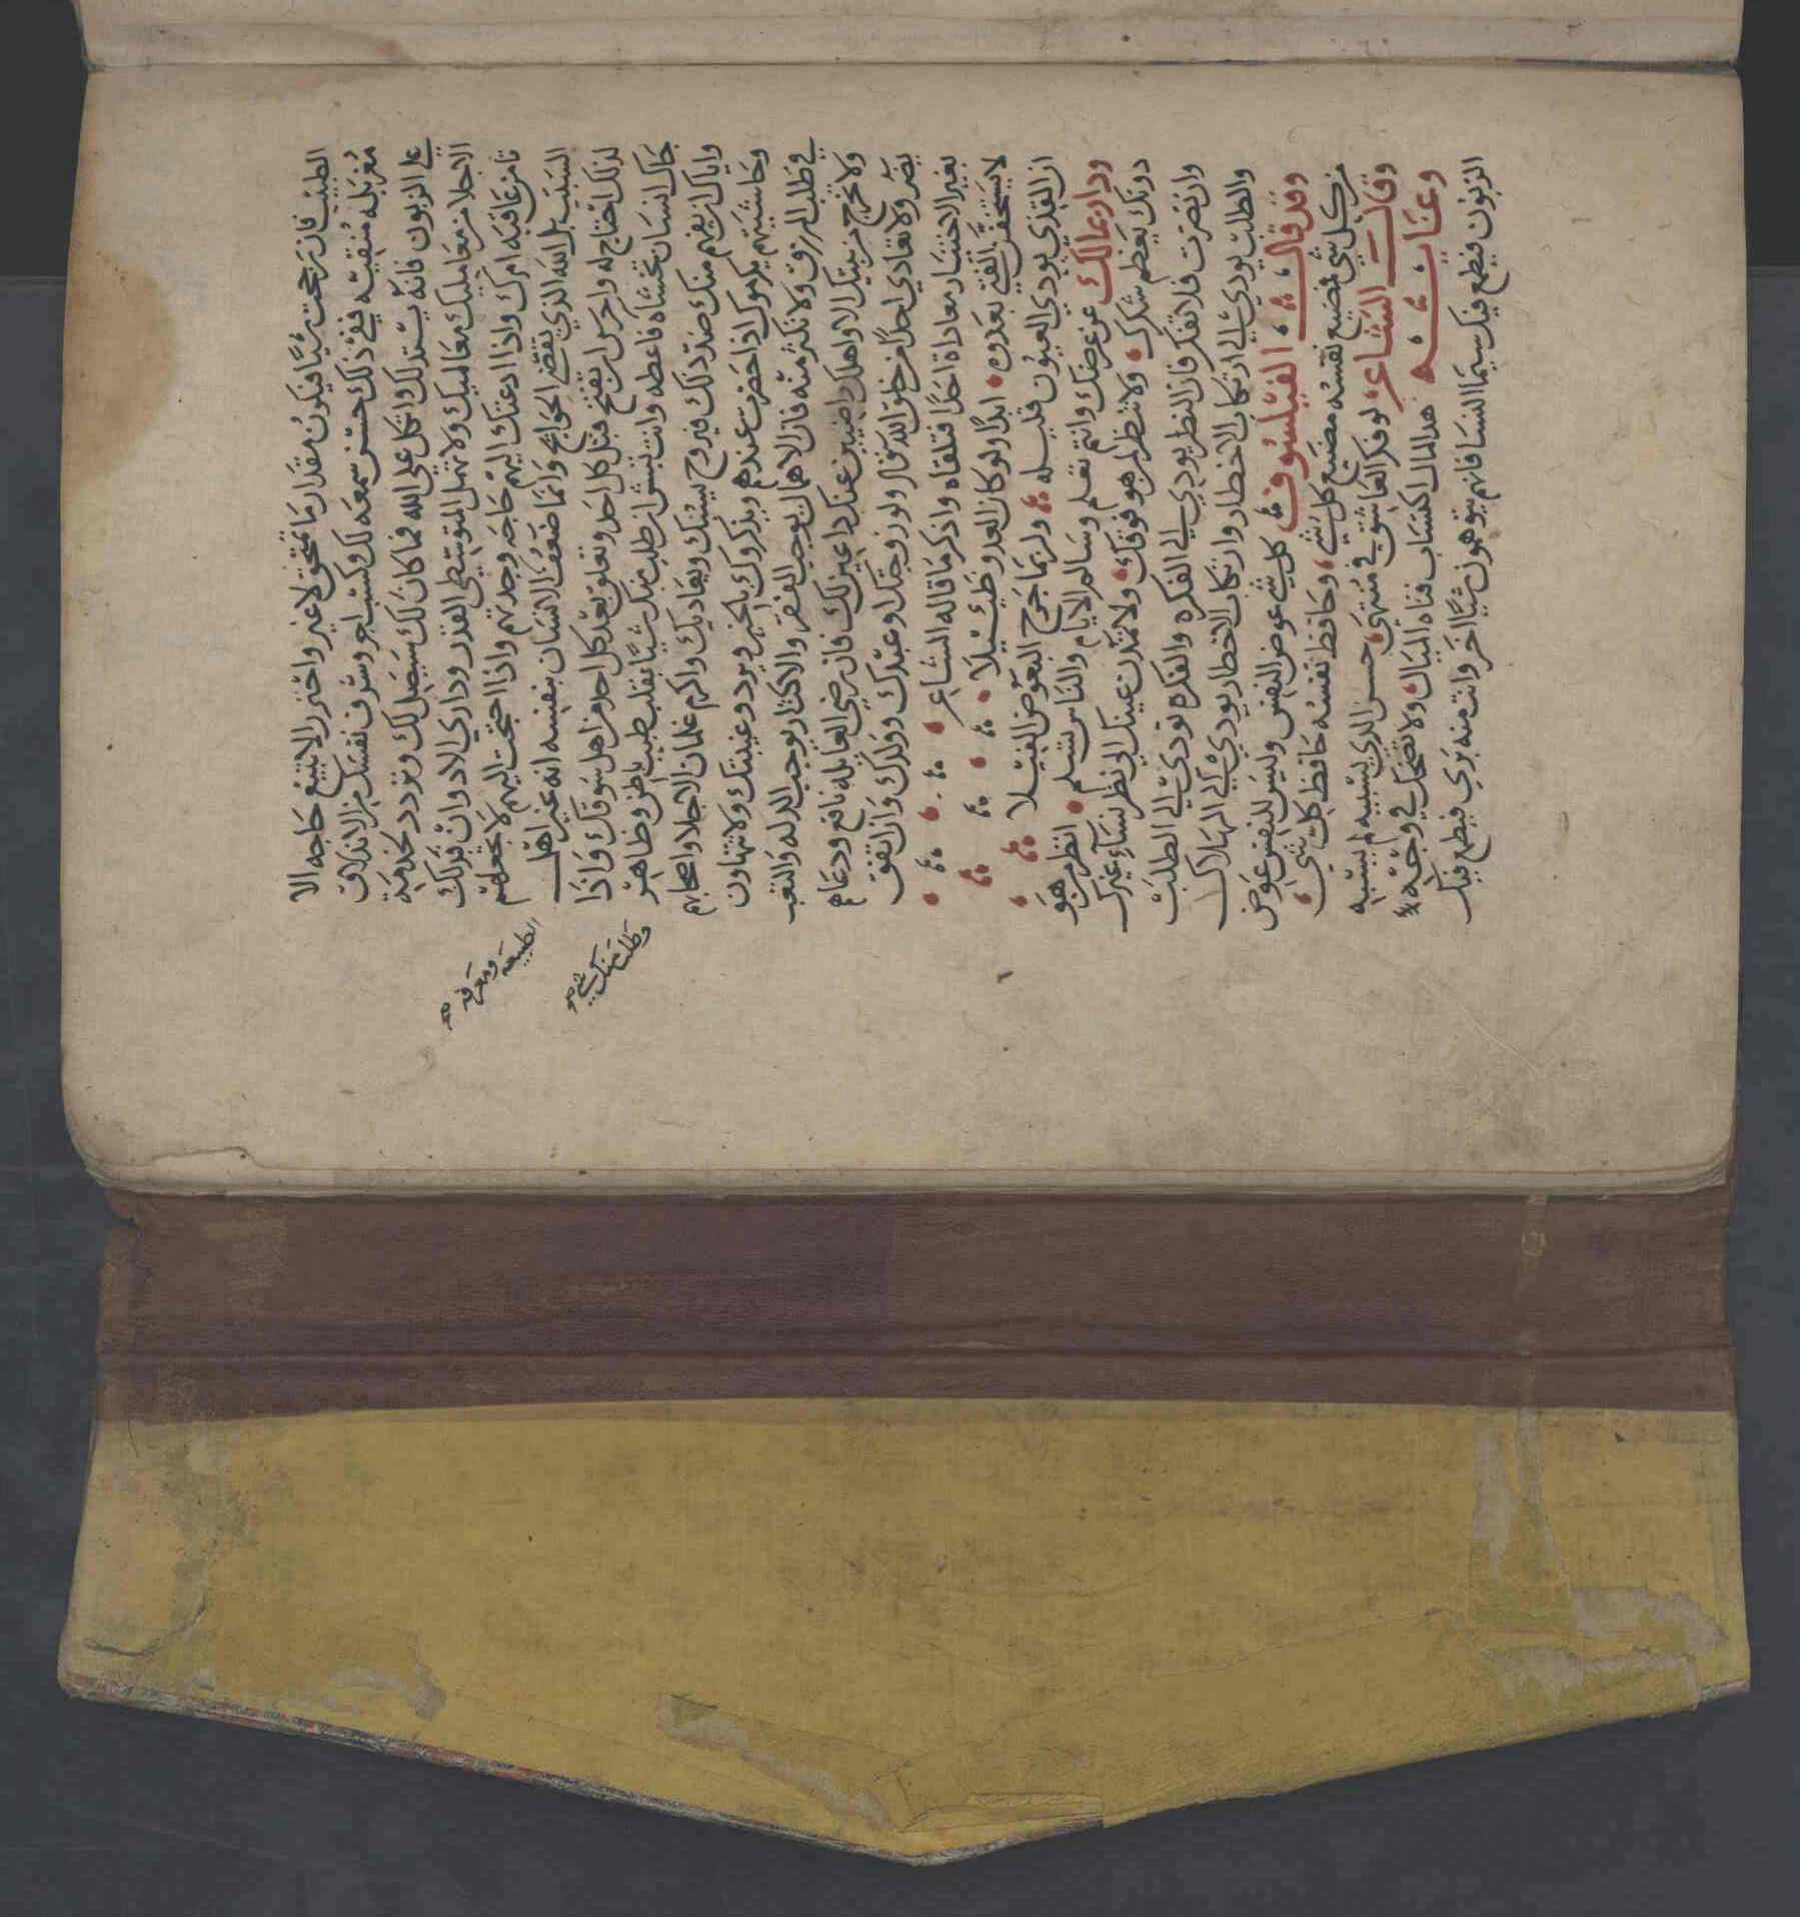 الطبيب فان زحت شيًا فيكون مقدار ما تمحق لاغير واحذر لا تبيع حاجه الا
مغربله منقيه ففي ذلك حسن سمعه لك وكسب اجر وشرف نفسك من الاندلاق
على الزبون فانه يستدلك واتكل على الله فما كان لك سيصل لك وتردد لخدمة
الاجلا من معامليك ولا تهمل المتوسطي القدر وداري الادوان بتركك
تامن عاقبه امرك واذا ادعتك اليهم حاجه وجدتهم واذا احتجت اليهم لا تجعلهم
السبب بل الله الذي يقضي الحوايج وانما ضعف الانسان بنفسه انه غير اهل
لذلك احتاج له واحرص ان تفتح قبل كل احد وتغلق بعد كل احد من اهل سوقك واذا
جاك انسان تخشاه فاعطه وانت تبش ان طلب منك شيًا بقلب طيب باطن وظاهر
واياك ان يفهم منك ضد ذلك فيروح يسبك ويعاديك واكرم غلمان الاجلا واصحابهم
وحاشيتهم يكرموك اذا حضرت عندهم ويذكروك بالخير ويردو غيبتك ولا تتهاون
في طلب الرزق ولا تكثر منه فان الاهمال يوجب الفقر والاكثار يوجب المدله والتعب
ولا تخرج من بيتك الا واهلك راضيين عنك داعين لك فان رضى العايله نافع ودعاهم
يضر ولا تعادي احدًا من خلق الله تعالى ولو زوجتك او عبدك وولدك وان اتفق
بغير الاختيار معاداة احدًا فتلقاه واذكر ما قاله الشاعر
لا يستخفن الفتى بعدوه ابدًا ولو كان العدو ضئيلا
ان القذى يودي العيون قليله ولربما جرح البعوض الفيلا
ودار عمالك عن غرضك وانتم تغنم وسالم الايام والناس تسلم انظر من هو
دونك يعظم شكرك ولا تنظر لمن هو فوقك ولا تمدن عينك الى نظر نساء غيرك
وان نضرت فلا تفكر فان النظر يودي الى الفكره والفكره تودي الى الطلب
والطلب يودي الى ارتكاب الاخطار وارتكاب الاخطار يودي الى الهلاك
وقد قال الفيلسوف كل شي عوض النفس وليس للنفس عوض
من كل شي فمضيع نفسه مضيع كل شي، وحافظ نفسه حافظ كل شي
وقال الشاعر لو فكر العاشق في منتهى حسن الذي يسبيه لم يسبيه
وعنايه هذا المال اكتساب فناه البيال ولا تضحك في وجه
الزبون فيطمع فيك سيما النسا فانهم يتوهمون شيًا اخر وانت منه بري فيطمع فيك
الطبيعه ومعرفه صح
وطلب منك شي صح